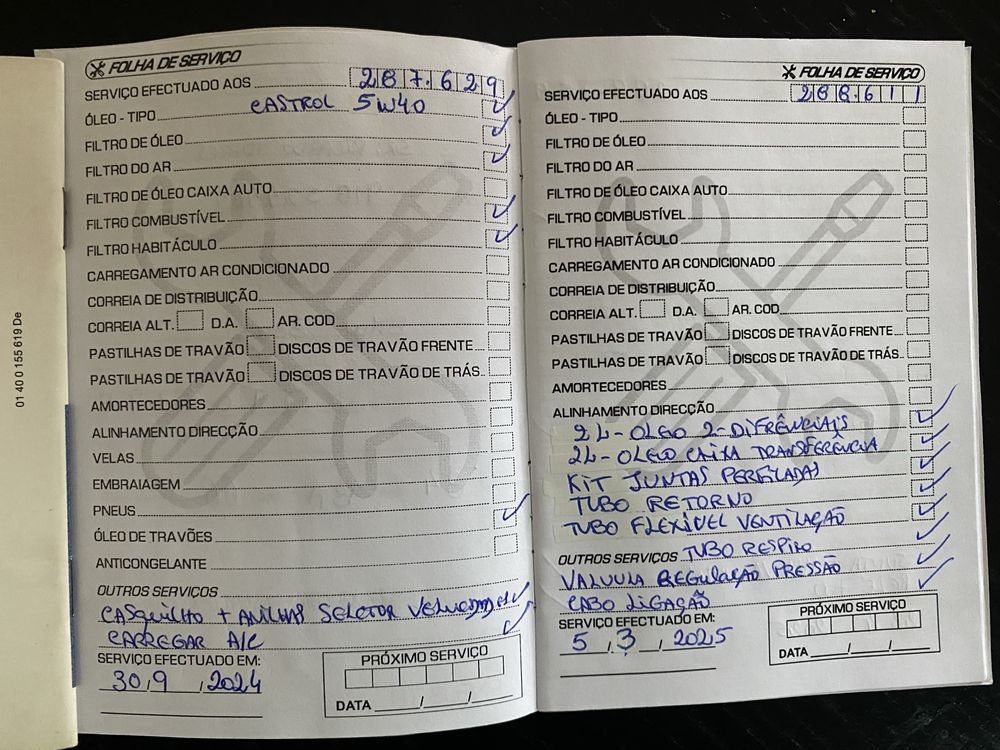 01 40 0 155 619 De
FOLHA DE SERVIÇO
SERVIÇO EFECTUADO AOS 287.629
ÓLEO - TIPO CASTROL 5W40
FILTRO DE ÓLEO
FILTRO DO AR
FILTRO DE ÓLEO CAIXA AUTO
FILTRO COMBUSTÍVEL
FILTRO HABITÁCULO
CARREGAMENTO AR CONDICIONADO
CORREIA DE DISTRIBUIÇÃO
CORREIA ALT. D.A. AR. COD
PASTILHAS DE TRAVÃO DISCOS DE TRAVÃO FRENTE
PASTILHAS DE TRAVÃO DISCOS DE TRAVÃO DE TRÁS
AMORTECEDORES
ALINHAMENTO DIRECÇÃO
VELAS
EMBRAIAGEM
PNEUS
ÓLEO DE TRAVÕES
ANTICONGELANTE
OUTROS SERVIÇOS
CASQUILHO + ANILHAS SELETOR VELOCIDADES
CARREGAR A/C
SERVIÇO EFECTUADO EM:
30, 9, 2024
PRÓXIMO SERVIÇO
DATA ____/____/____
FOLHA DE SERVIÇO
SERVIÇO EFECTUADO AOS 288.611
ÓLEO - TIPO
FILTRO DE ÓLEO
FILTRO DO AR
FILTRO DE ÓLEO CAIXA AUTO
FILTRO COMBUSTÍVEL
FILTRO HABITÁCULO
CARREGAMENTO AR CONDICIONADO
CORREIA DE DISTRIBUIÇÃO
CORREIA ALT. D.A. AR. COD
PASTILHAS DE TRAVÃO DISCOS DE TRAVÃO FRENTE
PASTILHAS DE TRAVÃO DISCOS DE TRAVÃO DE TRÁS
AMORTECEDORES
ALINHAMENTO DIRECÇÃO
2L - OLEO 2-DIFRÊNCIAIS
2L - OLEO CAIXA TRANSFERÊNCIA
KIT JUNTAS PERFILADAS
TUBO RETORNO
TUBO FLEXÍVEL VENTILAÇÃO
OUTROS SERVIÇOS TUBO RESPIRO
VALVULA REGULAÇÃO PRESSÃO
CABO LIGAÇÃO
SERVIÇO EFECTUADO EM:
5, 3, 2025
PRÓXIMO SERVIÇO
DATA ____/____/____